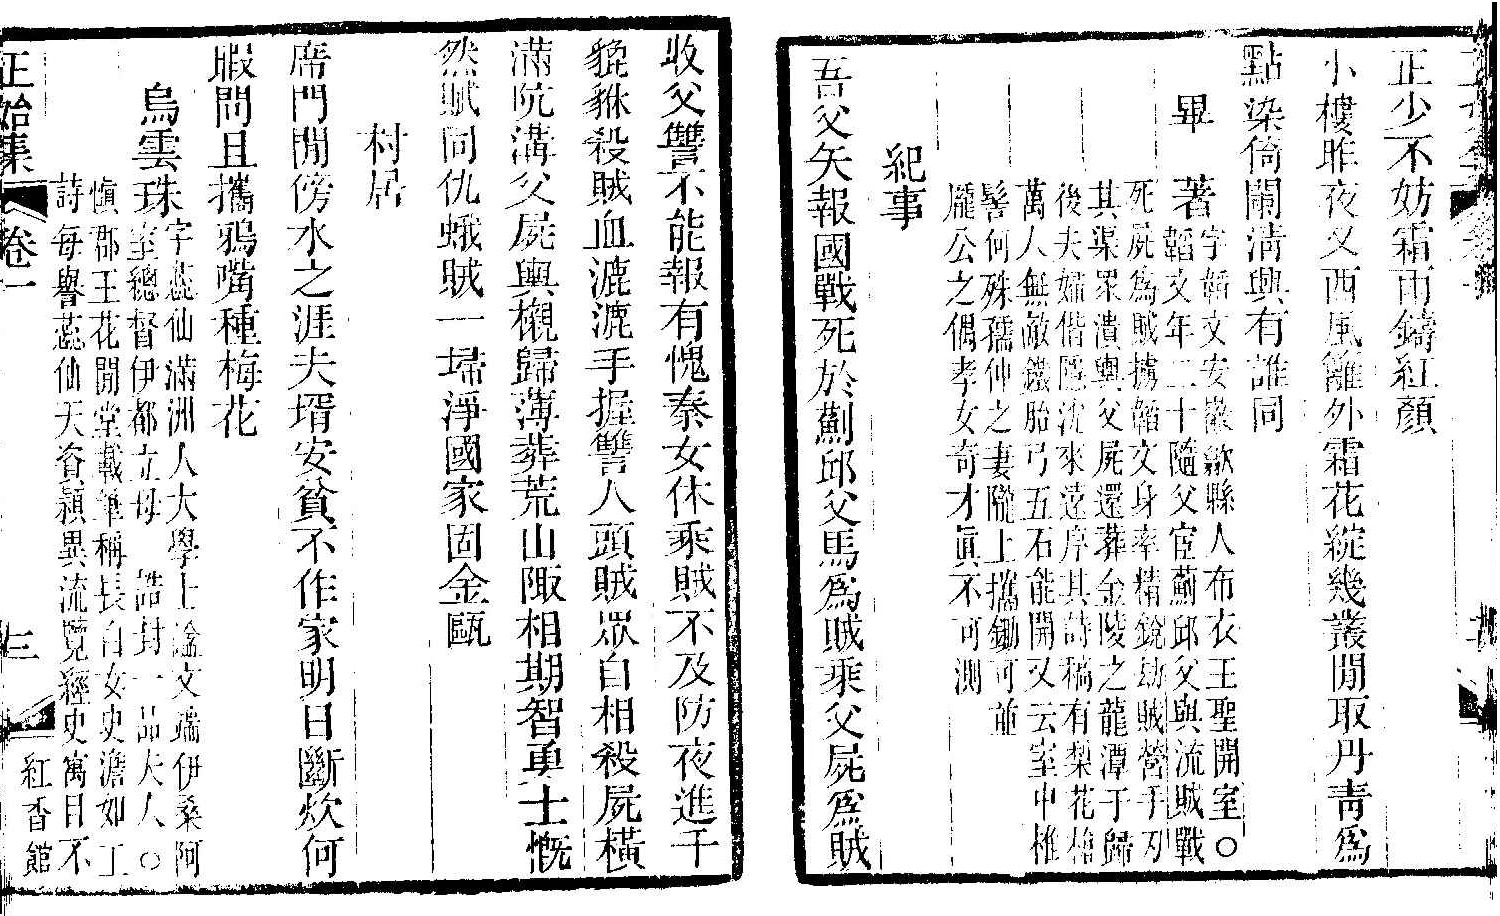 正少不妨霜雨鑄紅顏
小樓昨夜又西風籬外霜花綻幾叢閒取丹青爲
點染倚闌淸興有誰同
畢著字韜文安徽歙縣人布衣王聖開室○
韜文年二十隨父宦薊邱父與流賊戰
死屍爲賊擄韜文身率精銳劫賊營手刃
其渠眾潰輿父屍還葬金陵之龍潭于歸
後夫婦偕隱沈來遠序其詩稿有梨花槍
萬人無敵鐵胎弓五石能開又云室中椎
髻何殊孺仲之妻隴上攜鋤可並
龐公之偶孝女奇才眞不可測
紀事
吾父矢報國戰死於薊邱父馬爲賊乘父屍爲賊
收父讐不能報有愧秦女休乘賊不及防夜進千
貔貅殺賊血漉漉手握讐人頭賊眾自相殺屍橫
滿阬溝父屍輿櫬歸薄葬荒山陬相期智勇士慨
然賦同仇蛾賊一埽淨國家固金甌
村居
席門閒傍水之涯夫壻安貧不作家明日斷炊何
暇問且攜鴉嘴種梅花
烏雲珠字蕊仙滿洲人大學士諡文端伊桑阿
室總督伊都立母 誥封一品夫人○
愼郡王花閒堂載筆稱長白女史澹如丁
詩每譽蕊仙天資穎異流覽經史寓目不
正始集 卷一 三 紅香館